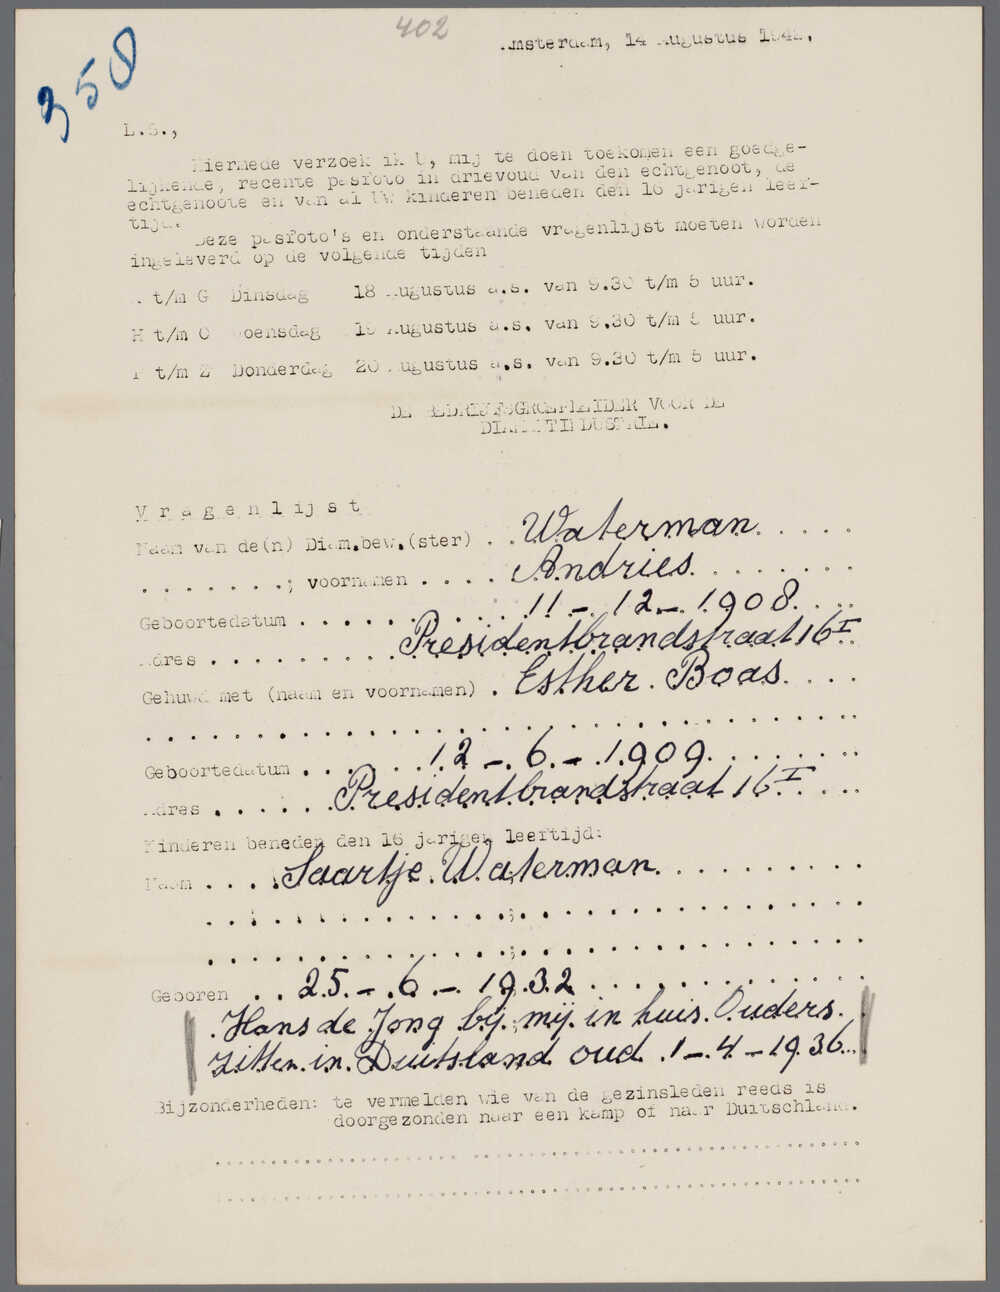 402
358
Amsterdam, 14 Augustus 1942.
L.S.,
Hiermede verzoek ik U, mij te doen toekomen een goedge-
lijkende, recente pasfoto in drievoud van den echtgenoot, de
echtgenoote en van al Uw kinderen beneden den 16 jarigen leef-
tijd.
Deze pasfoto's en onderstaande vragenlijst moeten worden
ingeleverd op de volgende tijden
A t/m G Dinsdag 18 Augustus a.s. van 9.30 t/m 5 uur.
H t/m O Woensdag 19 Augustus a.s. van 9.30 t/m 5 uur.
P t/m Z Donderdag 20 Augustus a.s. van 9.30 t/m 5 uur.
DE BEDRIJFSGROEPLEIDER VOOR DE
DIAMANTINDUSTRIE.
Vragenlijst
Naam van de(n) Diam.bew.(ster) . . Waterman . . . . .
. . . . . . . ; voornamen . . . . Andries . . . . . . . .
Geboortedatum . . . . . . . . . . 11 - 12 - 1908 . . .
Adres . . . . . . . . . Presidentbrandstraat 16 I
Gehuwd met (naam en voornamen) . Esther Boas . . . .
. . . . . . . . . . . . . . . . . . . . . . . . . . . . . .
Geboortedatum . . . . . . 12 - 6 - 1909 . . . . . . .
Adres . . . . . Presidentbrandstraat 16 I . . .
Kinderen beneden den 16 jarigen leeftijd:
Naam . . . . Saartje Waterman . . . . . . . . . .
. . . . . . . . . . . . . . ; . . . . . . . . . . . . . . .
. . . . . . . . . . . . . . ; . . . . . . . . . . . . . . .
Geboren . . 25 - 6 - 1932 . . . . . . . . . . . .
Hans de Jong bij mij in huis. Ouders
zitten in Duitsland oud 1 - 4 - 1936 . .
Bijzonderheden: te vermelden wie van de gezinsleden reeds is
doorgezonden naar een kamp of naar Duitschland.
. . . . . . . . . . . . . . . . . . . . . . . . . . . . . .
. . . . . . . . . . . . . . . . . . . . . . . . . . . . . .